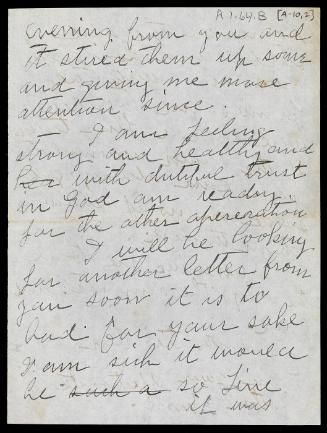 A.1.64.B [A-10,2]
evening from you and
it stired them up some
and giving me more
attention since.
I am feeling
strong and healthy and
with dutiful trust
in God am ready
for the other apereration
I will be looking
for another letter from
you soon it is to
bad for your sake
I am sick it would
be such a so fine
if was